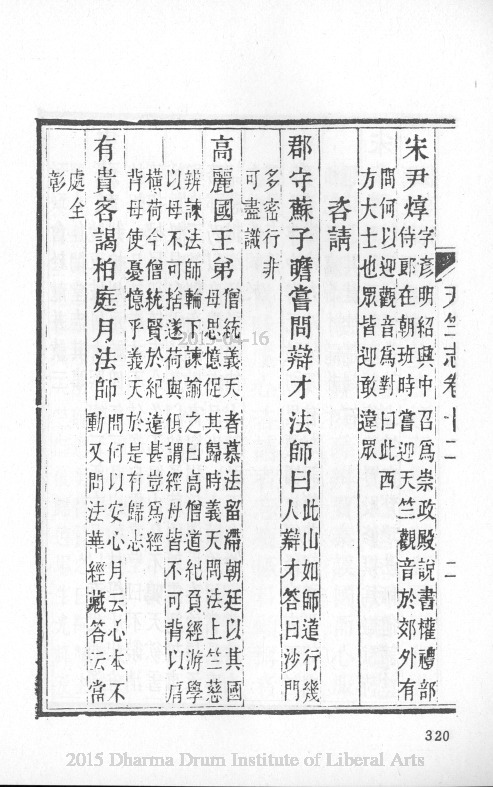 天竺志卷十二
二
宋尹焞
字彥明紹興中召爲崇政殿說書權禮部
侍郎在朝班時嘗迎天竺觀音於郊外有
問何以迎觀音爲對曰此西
方大士也眾皆迎敢違眾
咨請
郡守蘇子瞻嘗問辯才法師曰
此山如師道行幾
人辯才答曰沙門
多密行非
可盡識
高麗國王弟
僧統義天者慕法留滯朝廷以其國
母思憶促其歸時義天問法上竺慈
辨諫法師輪下諫諭之曰高僧道紀負經游學
以母不可捨遂荷與俱謂經母皆不可背以肩
橫荷今僧統賢於紀遠甚豈爲經
背母使憂憶乎義天於是有歸志
有貴客謁柏庭月法師
問何以安心月云心本不
動又問法華經藏答云當
處全
彰
2015-04-16
320
2015 Dharma Drum Institute of Liberal Arts